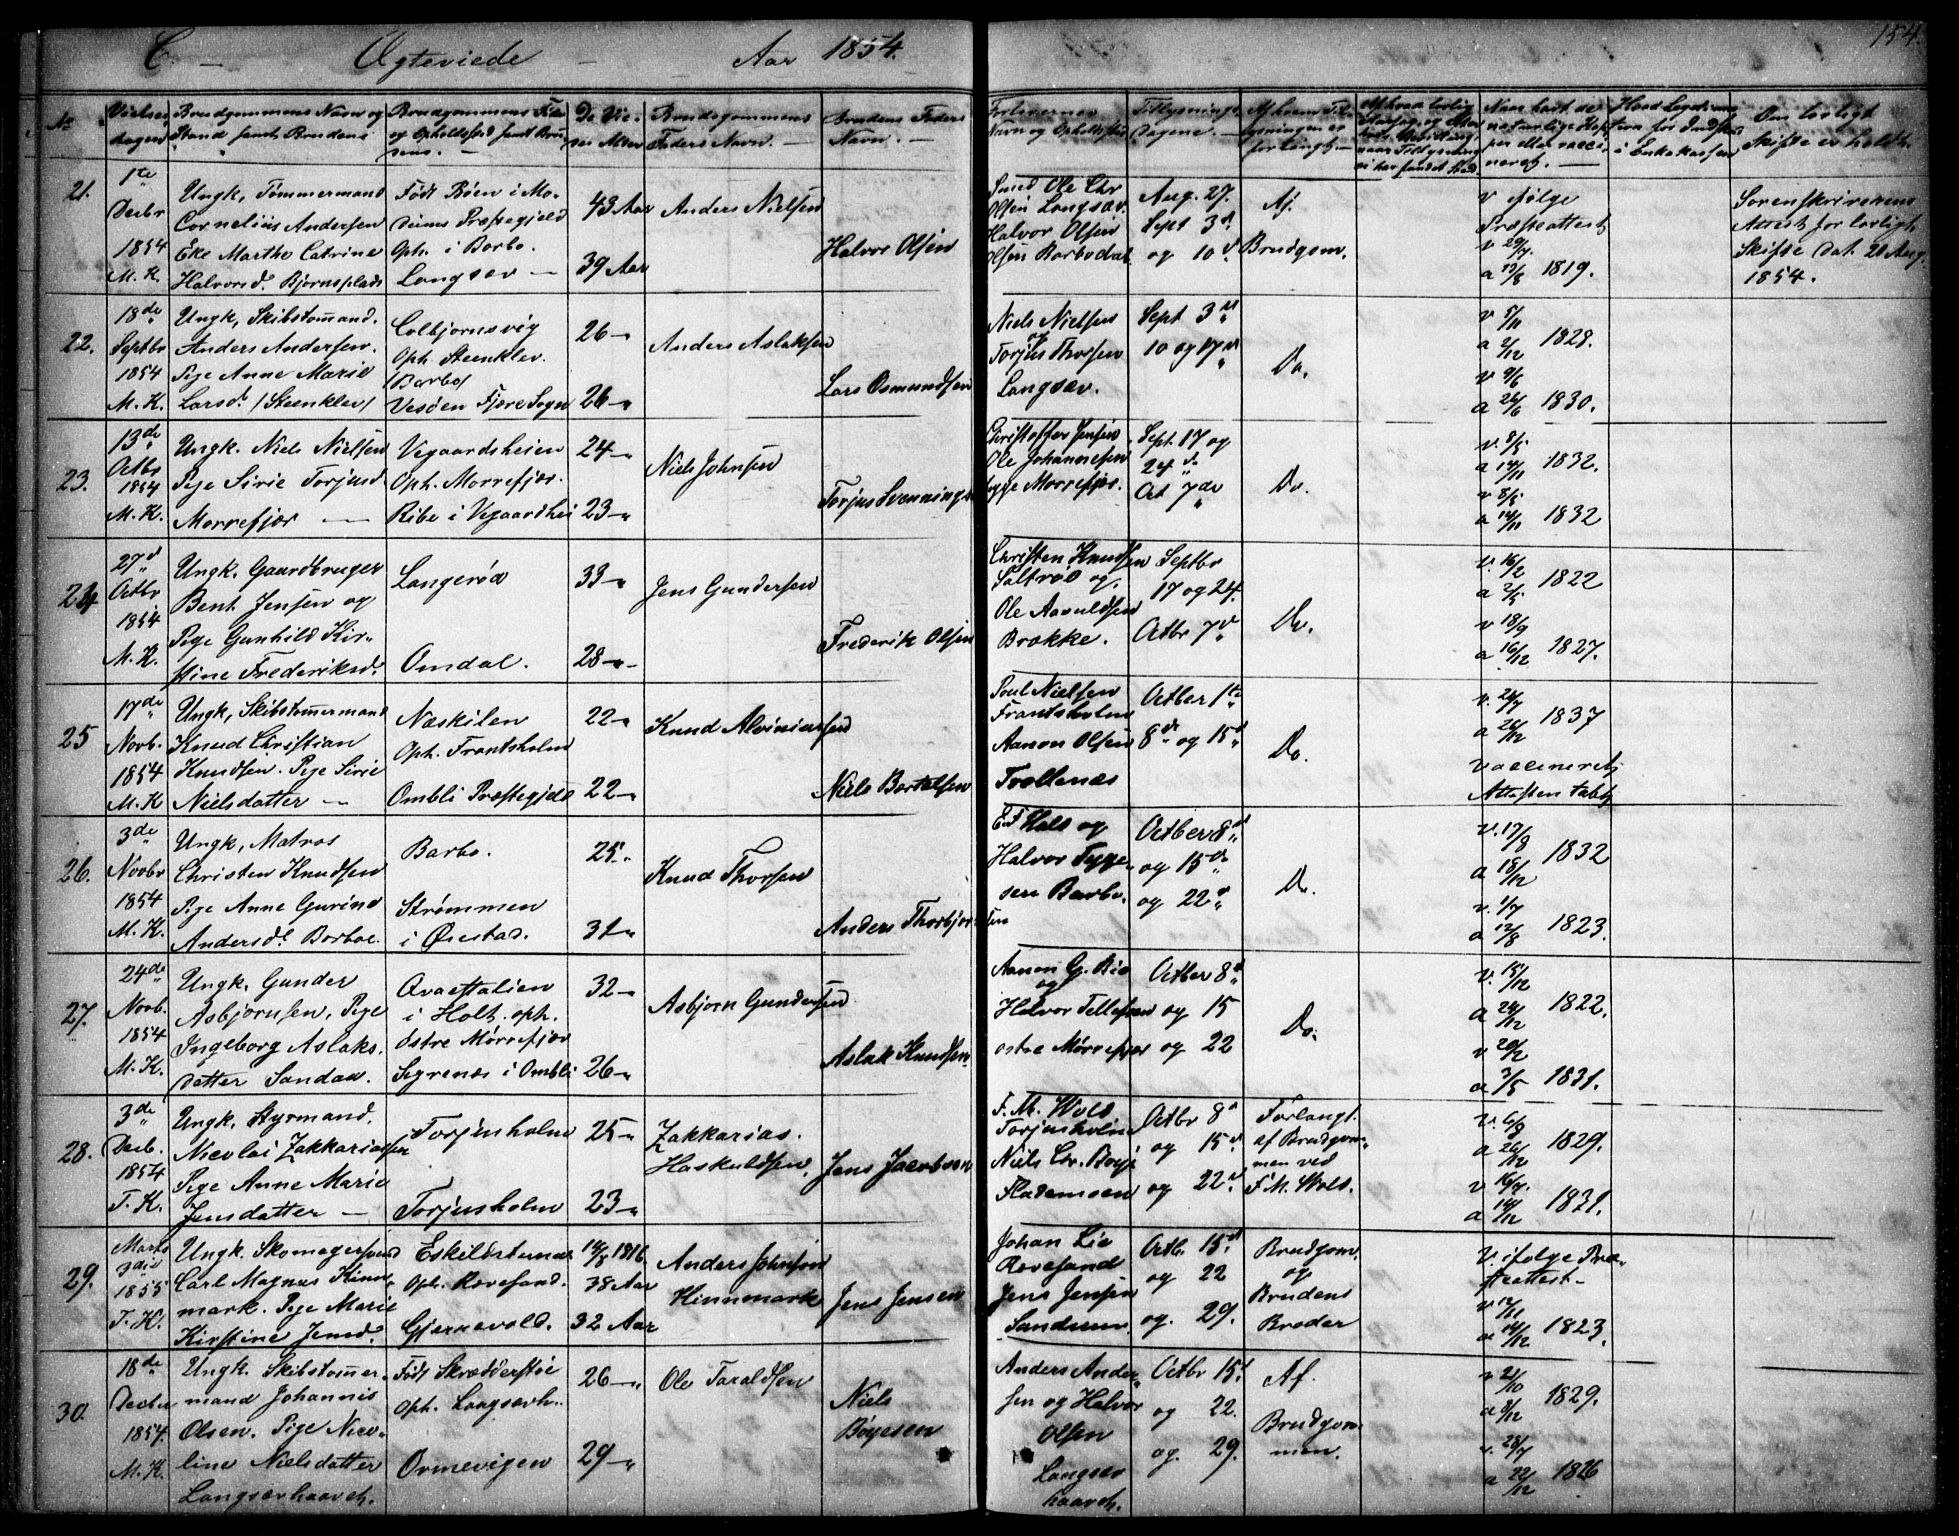 C. — Ægteviede — Aar 1854.
154.
No
Vielses dagen
Brudgommens Navn og Stand samt Brudens
Brudgommens Føde og Opholdssted samt Brudens. —
De Vie- des Alder
Brudgommens Faders Navn. —
Brudens Faders Navn. —
Forlovernes Navn og Opholdssted
Tillysnings Dagene. —
Af hvem Til- lysningen er forlangt —
Naar havt de naturlige Kop- per eller vacci- neret. —
Om lovligt Skifte er holdt.
21.
1te Decbr 1854 M. K.
Ungk, Tømmermand
Cornelius Andersen
Eke Marthe Catrine
Halvorsd. Bjørnsplads
Født Bøen i
Præstegjeld
Oph. i Barbo.
Langsæv —
43 Aar
39 Aar
Anders Nielsen
Halvor Olsen
Ole Chr
Olsen Langsæv.
Halvor Olsen
Aug. 27.
Sept 3d
og 10d
Af.
Brudgom.
v ifølge
Præsteattest
v 29/7
a 13/8 1819.
Sorenskriverens
Attest for lovligt
Skifte dat. 21 Aug.
1854.
22.
18de Septbr 1854 M. K.
Ungk, Skibstømand.
Anders Andersen.
Pige Anne Marie
Larsd. /Steenklev/
Colbjørnsvig
Oph. Steenklev.
/Barbo/
Vesøen Fjære Sogn
26 —
26 —
Anders Aslaksen
Lars Osmundsen
Niels Nielsen
Torjus Thorsen
Langsæv.
Sept 3d
10 og 17d
Do.
v 5/11
a 2/12 1828.
v 9/6
a 26/6 1830.
23.
13de Octbr 1854 M. K.
Ungk. Niels Nielsen
Pige Sirie Torjusd
Morrefjær —
Vegaardsheien
Oph. Morrefjær.
Ribe i Vegaardshei
24 —
23 —
Niels Johnsen
Torjus Svennings
Christoffer Jensen
Ole Johannesen
begge Morrefjær.
Sept. 17 og
24 d
Oct 7de
Do.
v. 8/5
a 14/11 1832.
v 8/5
a 14/11 1832
24
27d Octbr 1854 M. K.
Ungk. Gaardbruger
Bent Jensen og
Pige Gunhild Kir-
stine Frederiksd.
Langerød
Omdal.
33 —
28 —
Jens Gundersen
Frederik Olsen
Christen Knudsen
Saltrød og
Ole Aanuldsen
Brække.
Septbr
17 og 24.
Octbr 7d
Do.
v. 16/2
a 2/5 1822
v 18/9
a 16/12 1827.
25
17de Novb. 1854 M. K
Ungk, Skibstømermand
Knud Christian
Knudsen. Pige Sirie
Nielsdatter —
Næskilen
Oph. Frantsholm
Ombli Præstegjeld
22 —
22 —
Knud
Niels Bertelsen
Poul Nielsen
Frantsholm
Aanon Olsen
Trollenæs
Octber 1te
8d og 15d
Do.
v. 24/7
a 26/12 1837
vaccineret,
Attesten tabt
26.
3de Novbr 1854 M. K.
Ungk, Matros
Christen Knudsen
Pige Anne Gurine
Andersd. Barboe.
Barbo.
Strømmen
i Øiestad.
25 —
31 —
Knud Thorsen
Anders Thorbjørnsen
Hals og
Halvor Tygge-
sen Barbo.
Octber 8d
og 15de
og 22d
Do.
v. 17/8
a 18/12 1832
v. 1/7
a 12/8 1823.
27.
24de Novb. 1854 M. K.
Ungk. Gunder
Asbjørnsen, Pige
Ingeborg Aslaks-
datter Sandaa.
i Holt. oph.
østre Mørrefjær
i Ombli
32 —
26 —
Asbjørn Gundersen
Aslak Knudsen
Aanon G. Bie
og
Halvor Tellefsen
østre Mørrefjær
Octber 8d
og 15
og 22
Do.
v. 15/12
a 24/12 1822.
v 20/2
a 3/5 1831.
28.
3de Decb. 1854 T. K.
Ungk. Styrmand.
Nicolai Zakkariassen
Pige Anne Marie
Jensdatter —
Torjusholm
Torjusholm
25 —
23 —
Zakkarias.
Haskuldsen,
Jens Jacobsen
F. M. Wold
Torjusholm
Niels Chr. Boye
Flademoen
Octbr 8d
og 15d
og 22d
Forlangt.
af Brudgom-
men ved
F. M. Wold.
v. 6/9
a 26/12 1829.
v 16/4
a 14/12 1831.
29.
Marts 3die 1855 T. K.
Ungk. Skomagersvend
Carl Magnus Kinn-
mark. Pige Marie
Kirstine Jensd.
Eskilstuna
Oph. Revesand.
Gjernevold.
14/8 1816.
38 Aar
32 Aar
Anders Johnson
Hinnmark
Jens Jensen
Johan Lie
Revesand
Jens Jensen
Sandum
Octb. 15d
og 22
og. 29.
Brudgom.
og
Brudens
Broder
v. ifølge Præ-
steattest —
v 12/11
a 14/12 1823.
30.
18de Decber 1854. M. K.
Ungk. Skibstømer-
mand Johannis
Olsen. Pige Nico-
line Nielsdatter
Langsævhaaveh.
Født Skrædderstøe
Oph. Langsævh.
Ormevigen
26 —
29 —
Ole Taraldsen
Niels
Bøyesen
Anders Ander-
sen og Halvor
Olsen
Langsæv
haaveh.
Octbr 15d
og 22.
og. 29.
Af.
Brudgom-
men.
v 21/10
a 8/12 1829.
v. 28/7
a 22/12 1826